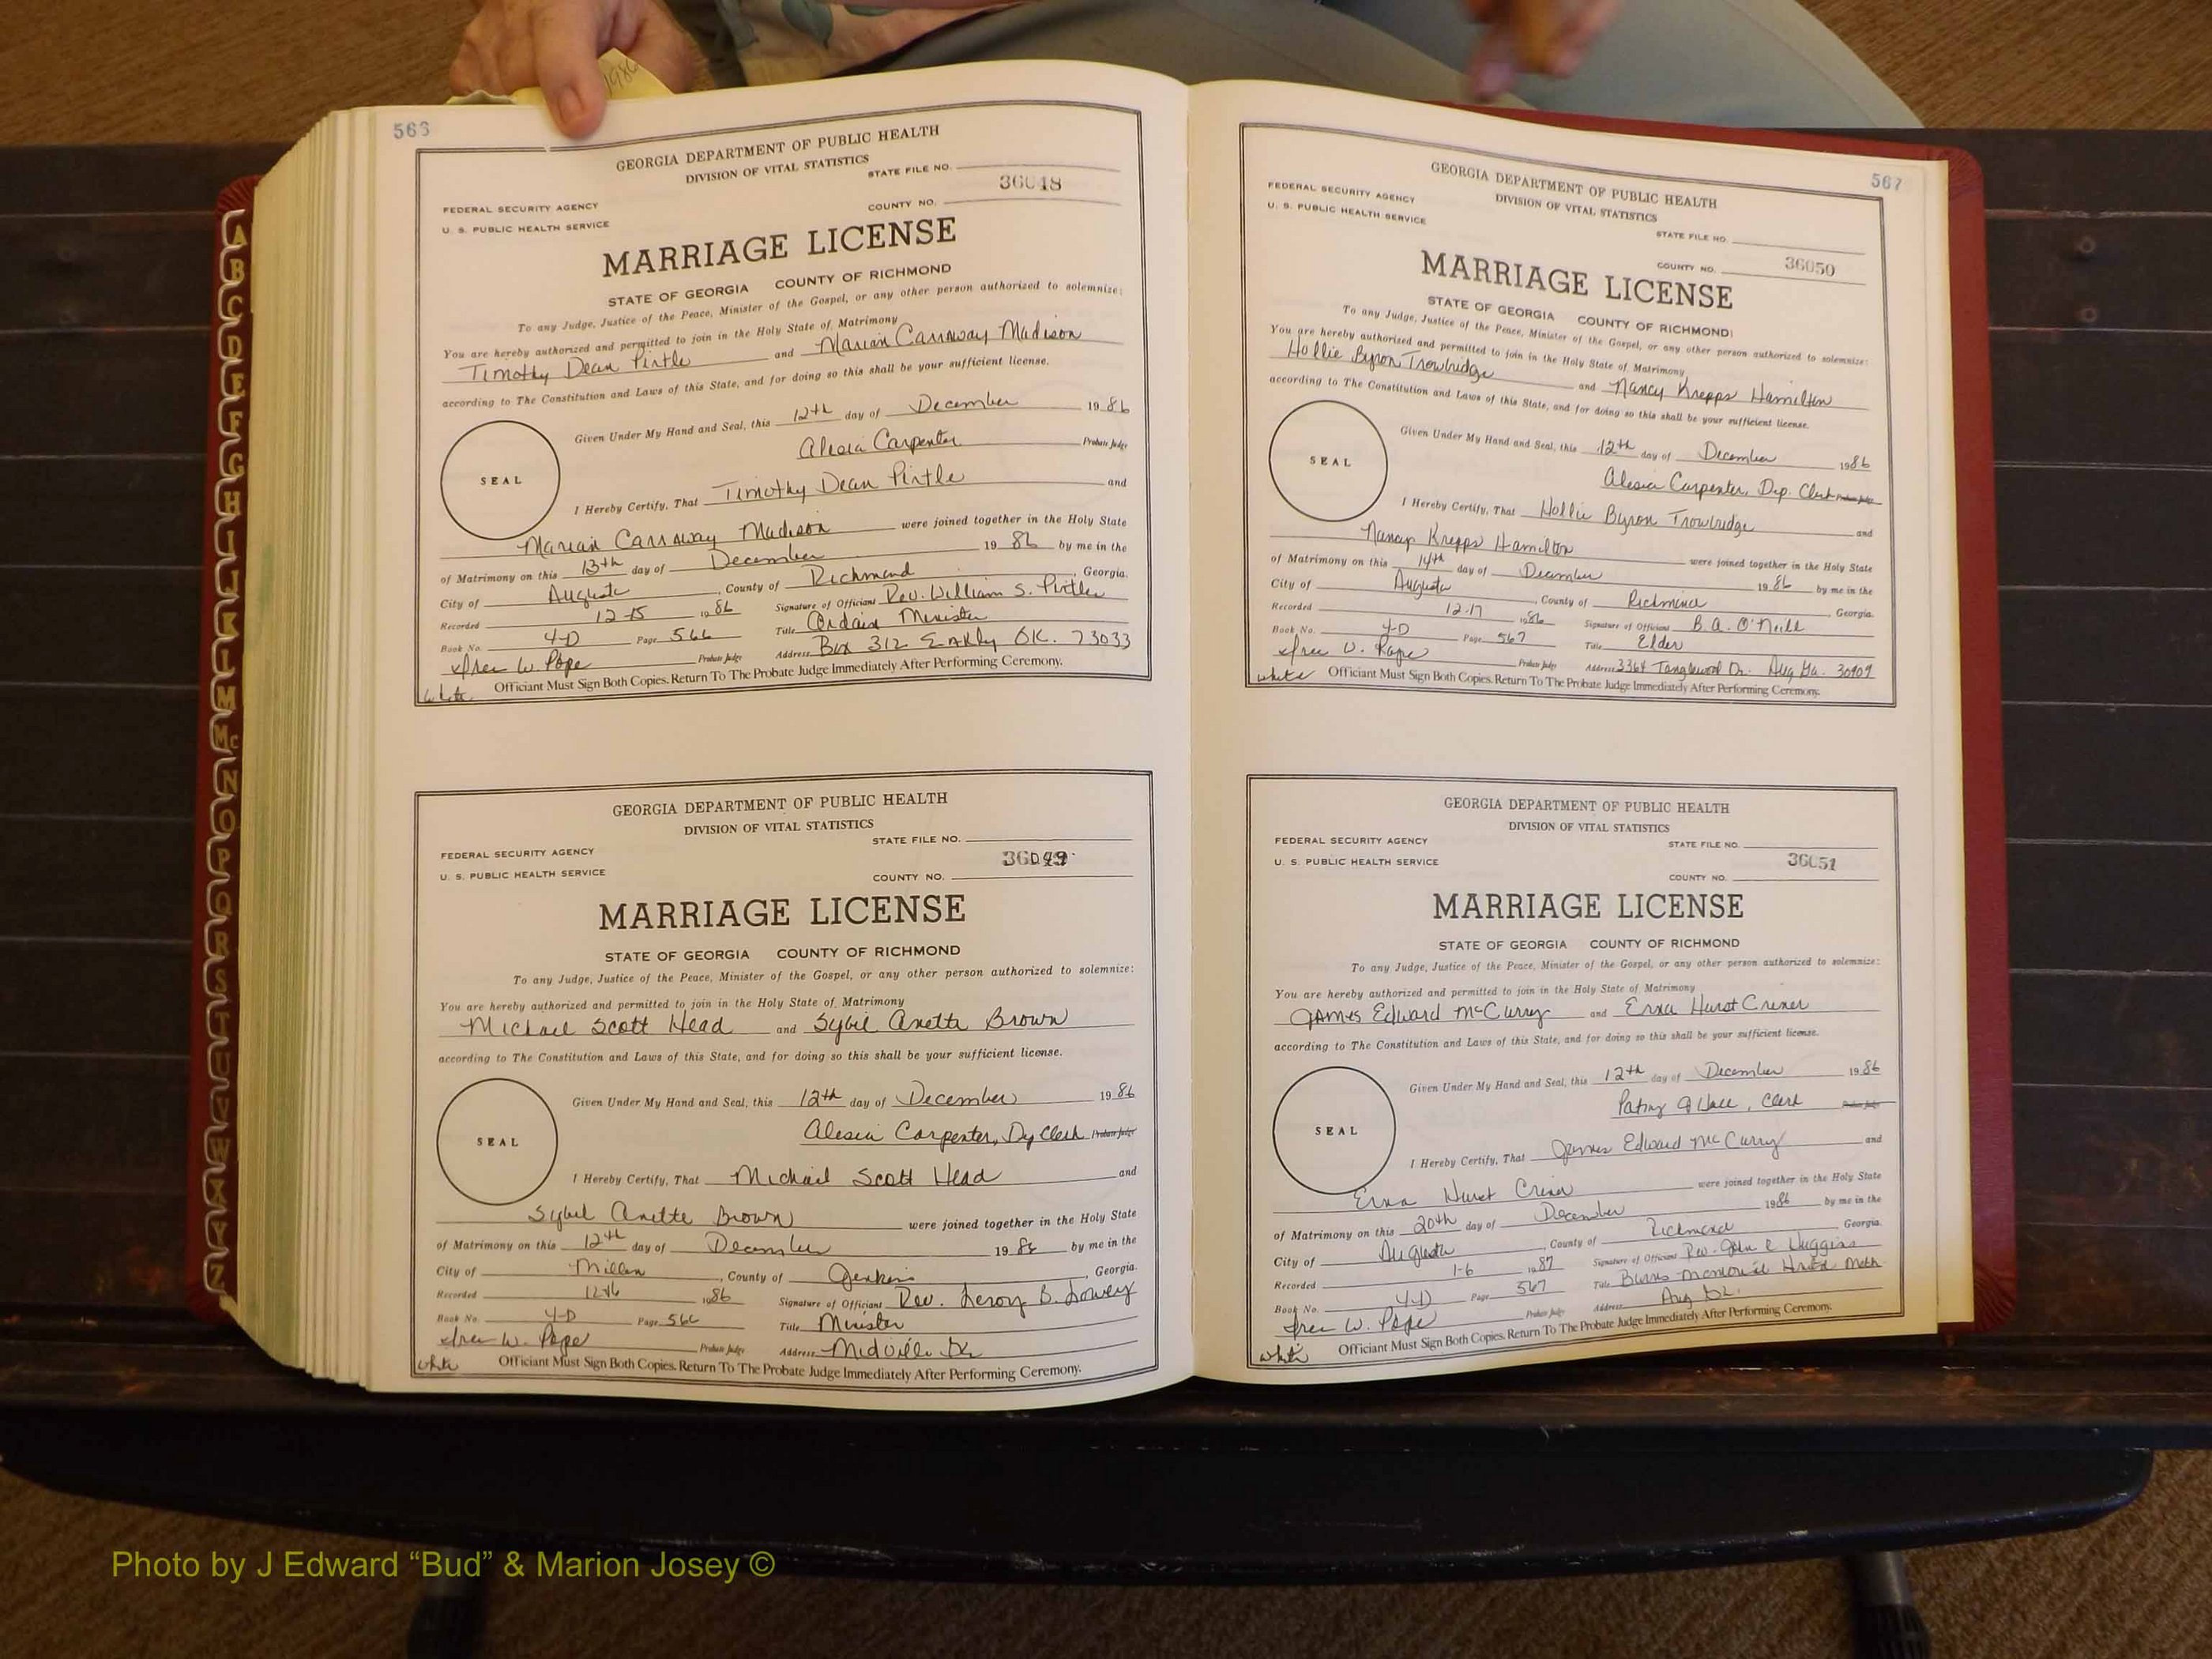 1986
566
GEORGIA DEPARTMENT OF PUBLIC HEALTH
DIVISION OF VITAL STATISTICS
STATE FILE NO.
36048
FEDERAL SECURITY AGENCY
COUNTY NO.
U. S. PUBLIC HEALTH SERVICE
MARRIAGE LICENSE
STATE OF GEORGIA COUNTY OF RICHMOND
To any Judge, Justice of the Peace, Minister of the Gospel, or any other person authorized to solemnize:
You are hereby authorized and permitted to join in the Holy State of Matrimony
Timothy Dean Pirtle and Marian Carraway Madison
according to The Constitution and Laws of this State, and for doing so this shall be your sufficient license.
Given Under My Hand and Seal, this 12th day of December 1986
Alesia Carpenter Probate Judge
SEAL
I Hereby Certify, That Timothy Dean Pirtle and
Marian Carraway Madison were joined together in the Holy State
of Matrimony on this 13th day of December 1986 by me in the
City of Augusta, County of Richmond, Georgia.
Recorded 12-15 1986 Signature of Officiant Rev. William S. Pirtle
Book No. 4-D Page 566 Title Ordain Minister
Probate Judge Address Box 312 Eakly OK. 73033
white Officiant Must Sign Both Copies. Return To The Probate Judge Immediately After Performing Ceremony.
GEORGIA DEPARTMENT OF PUBLIC HEALTH
DIVISION OF VITAL STATISTICS
STATE FILE NO.
FEDERAL SECURITY AGENCY
36049
U. S. PUBLIC HEALTH SERVICE
COUNTY NO.
MARRIAGE LICENSE
STATE OF GEORGIA COUNTY OF RICHMOND
To any Judge, Justice of the Peace, Minister of the Gospel, or any other person authorized to solemnize:
You are hereby authorized and permitted to join in the Holy State of Matrimony
Michael Scott Head and Sybil Anette Brown
according to The Constitution and Laws of this State, and for doing so this shall be your sufficient license.
Given Under My Hand and Seal, this 12th day of December 1986
Alesia Carpenter, Dy Clerk Probate Judge
SEAL
I Hereby Certify, That Michael Scott Head and
Sybil Anette Brown were joined together in the Holy State
of Matrimony on this 12th day of December 1986 by me in the
City of Millen, County of Jenkins, Georgia.
Recorded 12-16 1986 Signature of Officiant Rev. Leroy B. Lowery
Book No. 4-D Page 566 Title Minister
W. Pope Probate Judge Address Midville Ga
white Officiant Must Sign Both Copies. Return To The Probate Judge Immediately After Performing Ceremony.
567
GEORGIA DEPARTMENT OF PUBLIC HEALTH
DIVISION OF VITAL STATISTICS
FEDERAL SECURITY AGENCY
U. S. PUBLIC HEALTH SERVICE
STATE FILE NO.
COUNTY NO. 36050
MARRIAGE LICENSE
STATE OF GEORGIA COUNTY OF RICHMOND
To any Judge, Justice of the Peace, Minister of the Gospel, or any other person authorized to solemnize:
You are hereby authorized and permitted to join in the Holy State of Matrimony
Hollie Byron Trowbridge and Nancy Krepps Hamilton
according to The Constitution and Laws of this State, and for doing so this shall be your sufficient license.
Given Under My Hand and Seal, this 12th day of December 1986
Alesia Carpenter, Dep. Clerk Probate Judge
SEAL
I Hereby Certify, That Hollie Byron Trowbridge and
Nancy Krepps Hamilton were joined together in the Holy State
of Matrimony on this 14th day of December 1986 by me in the
City of Augusta, County of Richmond, Georgia.
Recorded 12-17 1986 Signature of Officiant B.A. O'Neill
Book No. 4-D Page 567 Title Elder
Probate Judge Address 3364 Tanglewood Dr. Aug Ga. 30909
white Officiant Must Sign Both Copies. Return To The Probate Judge Immediately After Performing Ceremony.
GEORGIA DEPARTMENT OF PUBLIC HEALTH
DIVISION OF VITAL STATISTICS
FEDERAL SECURITY AGENCY
STATE FILE NO.
U. S. PUBLIC HEALTH SERVICE
36051
COUNTY NO.
MARRIAGE LICENSE
STATE OF GEORGIA COUNTY OF RICHMOND
To any Judge, Justice of the Peace, Minister of the Gospel, or any other person authorized to solemnize:
You are hereby authorized and permitted to join in the Holy State of Matrimony
James Edward McCurry and Erna Hurst Criner
according to The Constitution and Laws of this State, and for doing so this shall be your sufficient license.
Given Under My Hand and Seal, this 12th day of December 1986
Clerk Probate Judge
SEAL
I Hereby Certify, That James Edward McCurry and
Erna Hurst Criner were joined together in the Holy State
of Matrimony on this 20th day of December 1986 by me in the
City of Augusta, County of Richmond, Georgia.
Recorded 1-6 1987 Signature of Officiant Rev. John E Huggins
Book No. 4-D Page 567 Title Burns Memorial Meth
W. Pope Probate Judge Address Aug Ga.
white Officiant Must Sign Both Copies. Return To The Probate Judge Immediately After Performing Ceremony.
A
B
C
D
E
F
G
H
I
J
K
L
M
Mc
N
O
P
Q
R
S
T
U
V
W
X
Y
Z
Photo by J Edward “Bud” & Marion Josey ©